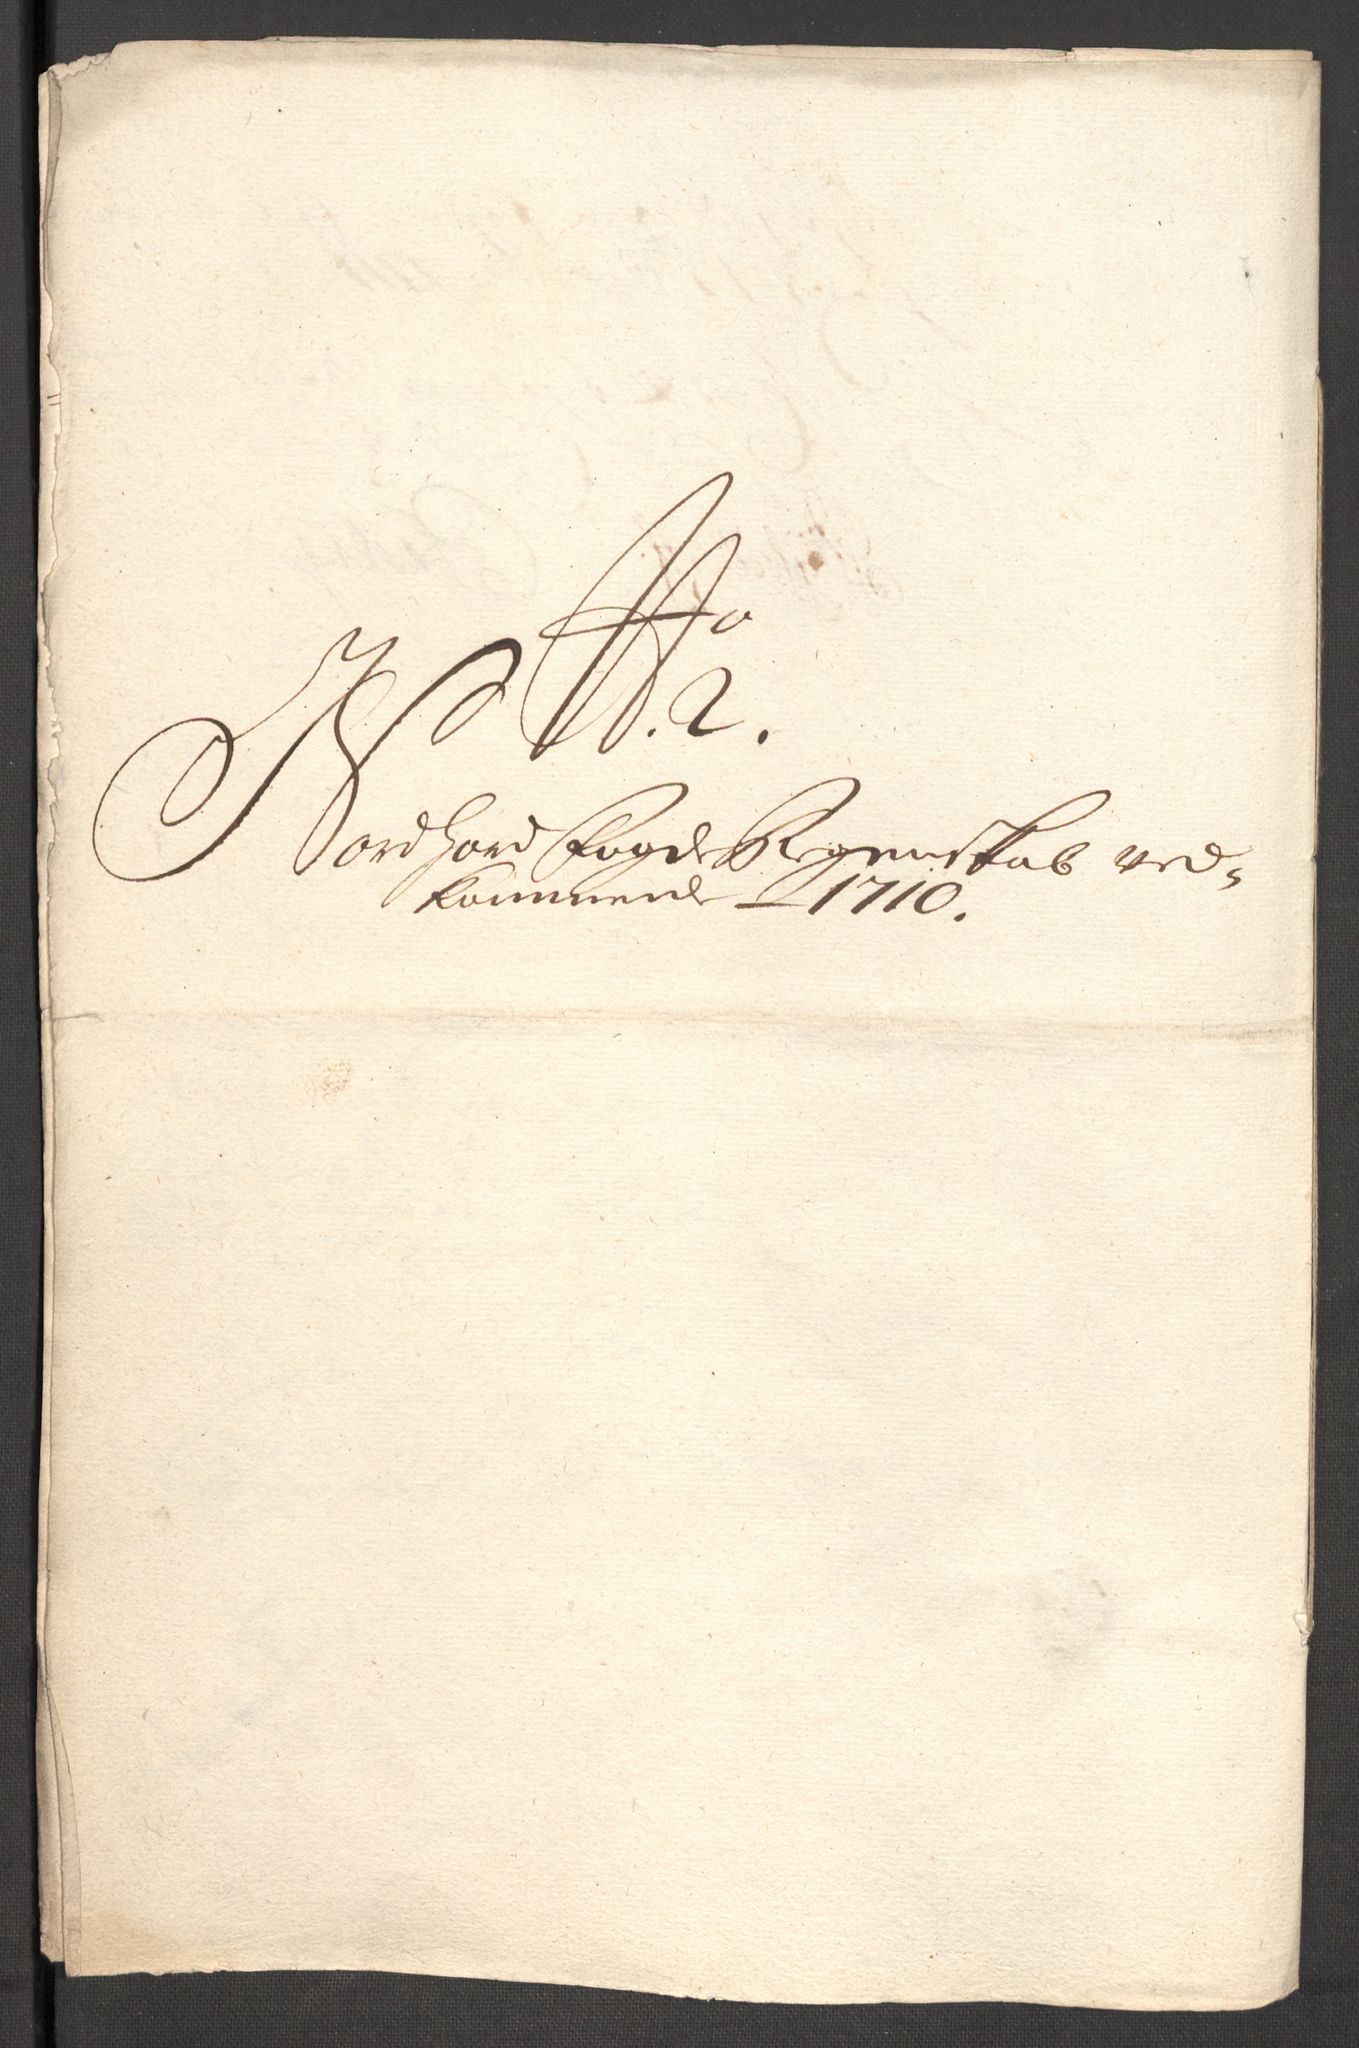 No
2.
Nordhord Fogde Regenskab ved-
kommende 1710.